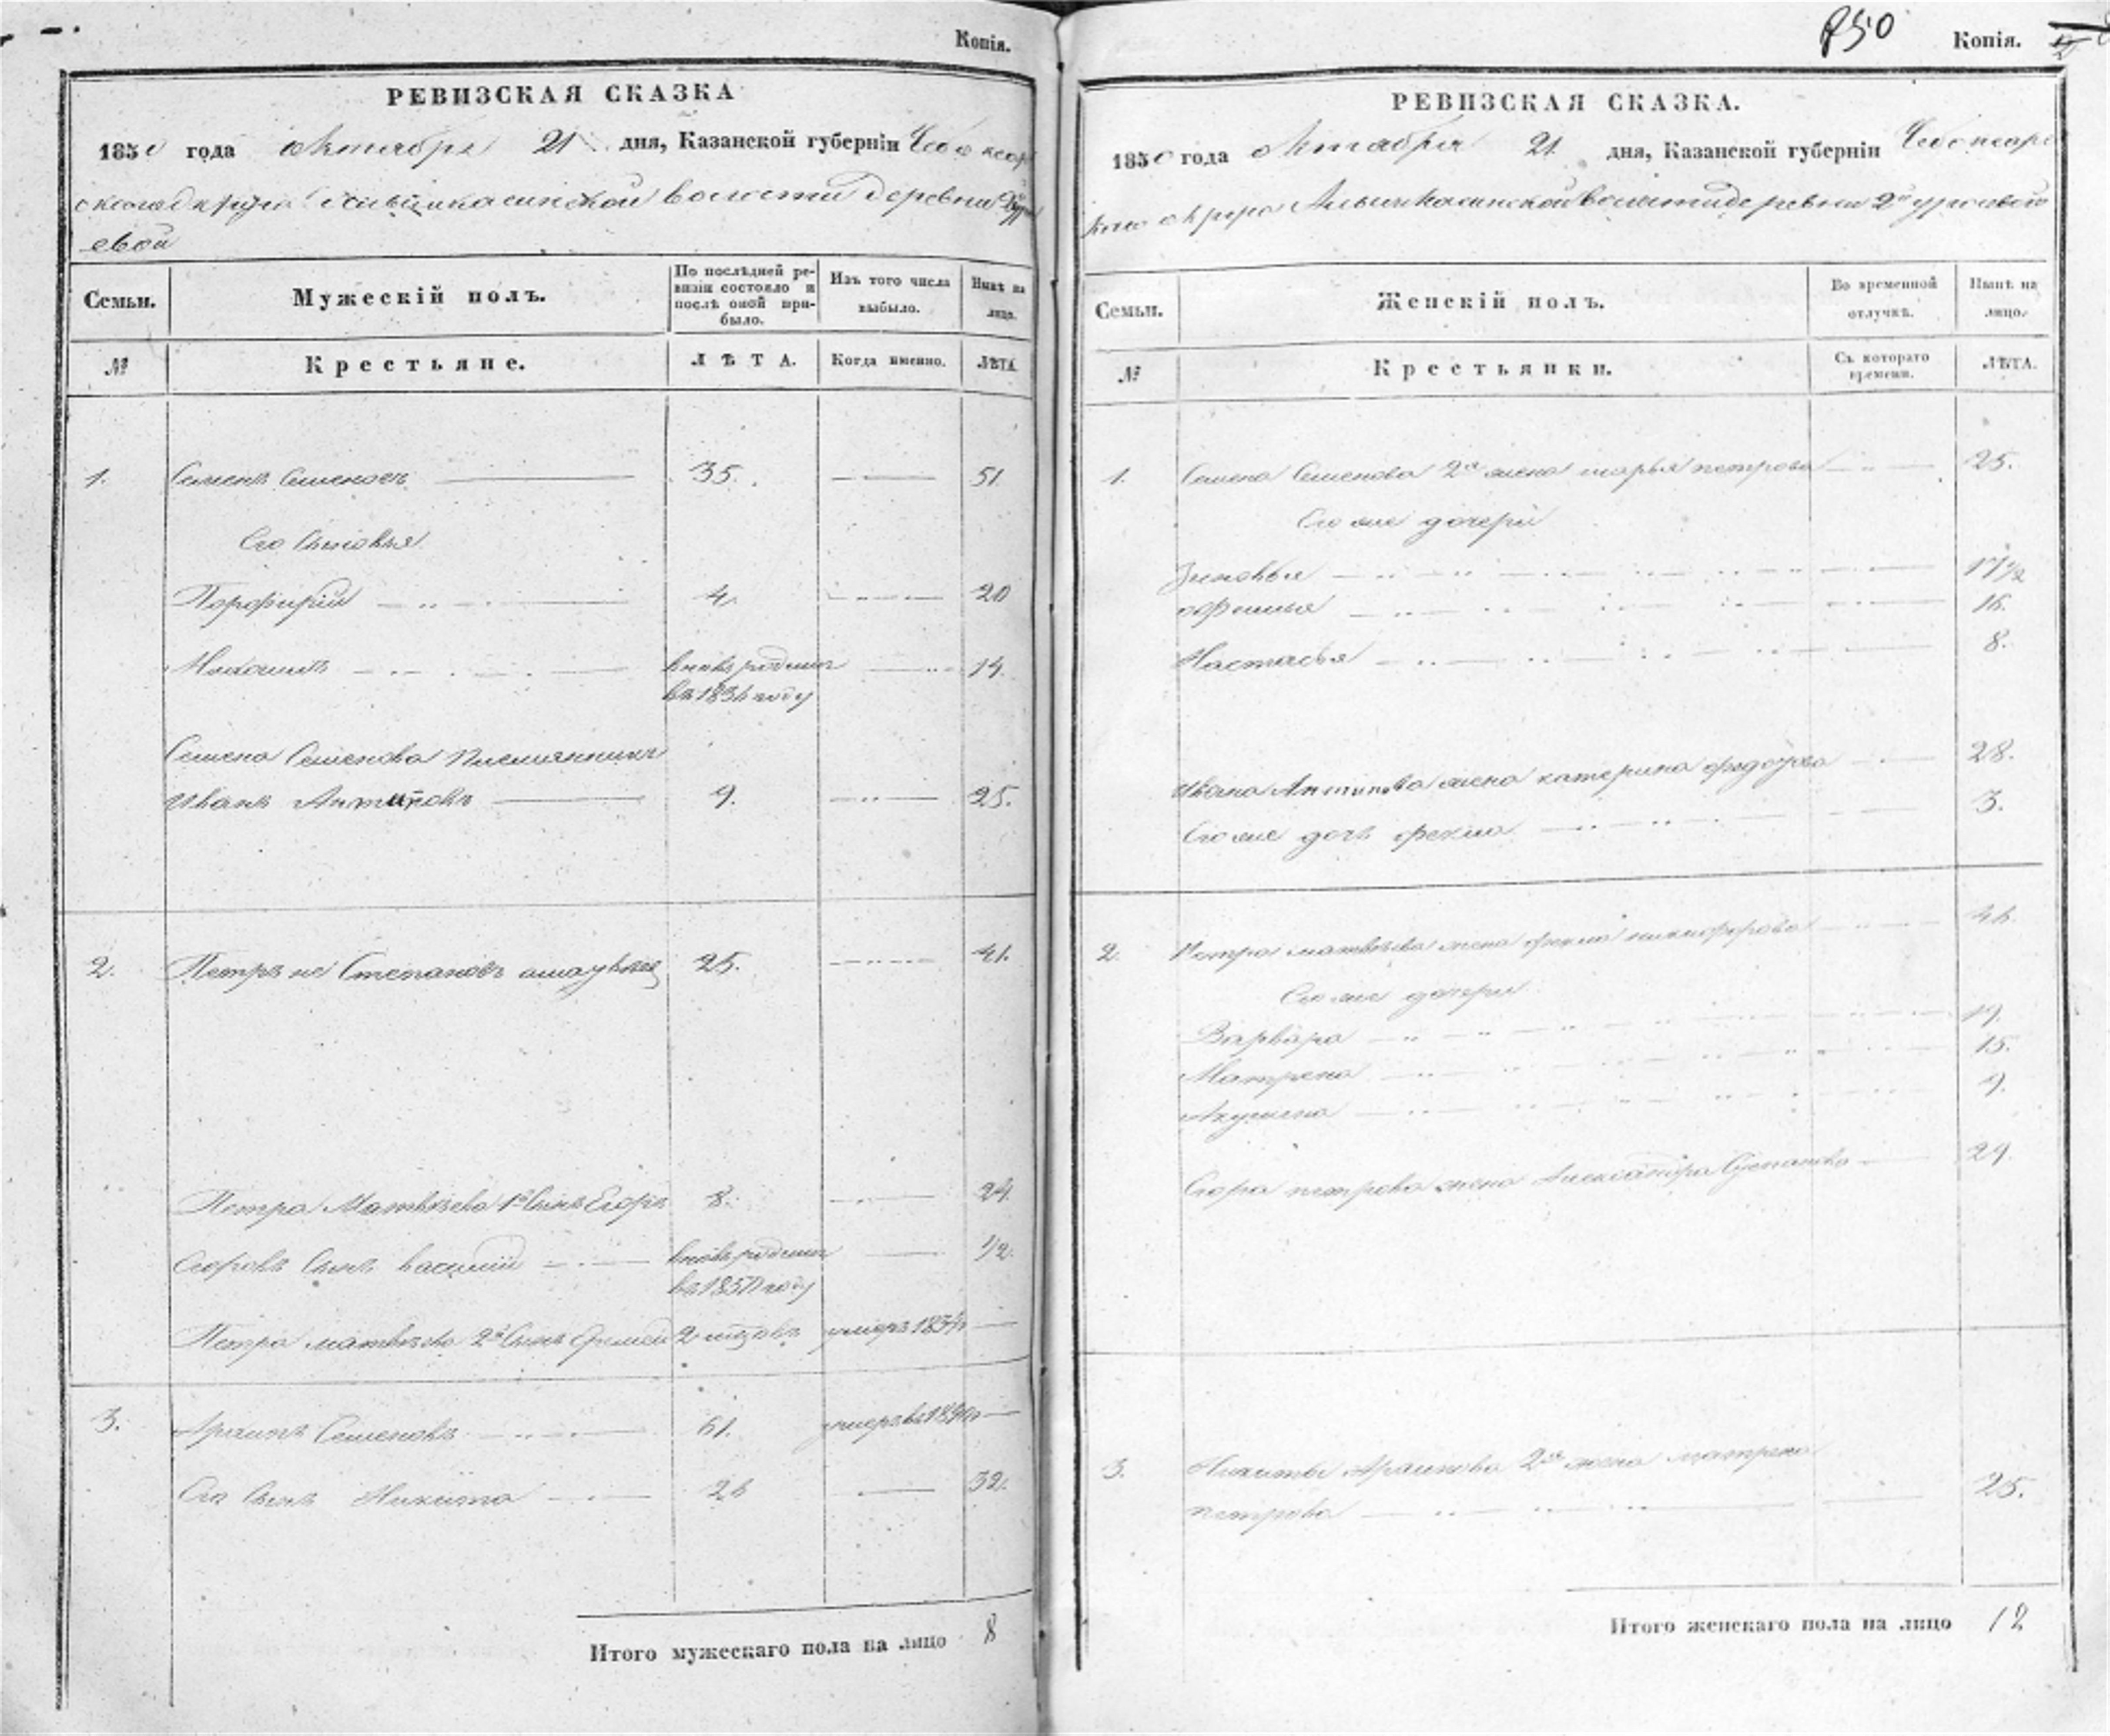 Копія.
РЕВИЗСКАЯ СКАЗКА
1850 года октября 21 дня, Казанской губерніи Чебоксар
скаго округа волости деревни
евой
Семьи. Мужескій полъ. По послѣдней ревизіи состояло и послѣ оной прибыло. Изъ того числа выбыло. Нынѣ на лицо.
№ Крестьяне. ЛѢТА. Когда именно. ЛѢТА.
1. Семенъ Семеновъ 35. 51.
Его сыновья
Порфирій 4. 20
Максимъ вновь родился 14.
въ 1834 году
Семена Семенова племянникъ
Иванъ Антиповъ 9. 25.
2. Петръ не Степановъ а 25. 41.
Петра Матвѣева 1й сынъ Егоръ 8. 24.
Егоровъ сынъ василій вновь родился 1/2.
въ 1850 году
Петра матвѣева 2й сынъ 2 умеръ
3. Семеновъ 61. умеръ въ
Его сынъ Никита 32.
Итого мужескаго пола на лицо 8
850 Копія.
РЕВИЗСКАЯ СКАЗКА.
1850 года Октября 21 дня, Казанской губерніи Чебоксарс
каго округа волости деревни 2й
Семьи. Женскій полъ. Во временной отлучкѣ. Нынѣ на лицо.
№ Крестьянки. Съ котораго времени. ЛѢТА.
1. Семена Семенова 2я жена марья петрова 25.
Его же дочери
Зиновья 17 1/2
офимья 16.
Настасья 8.
Ивана Антипова жена катерина федотова 28.
Его же дочь фекла 3.
2. Петра матвѣева жена фекла никифорова
Его же дочери
Варвара 19.
Матрена 15.
Акулина 9.
Егора петрова жена Александра Степанова 29.
3. Никиты 2я жена матрена
петрова 25.
Итого женскаго пола на лицо 12